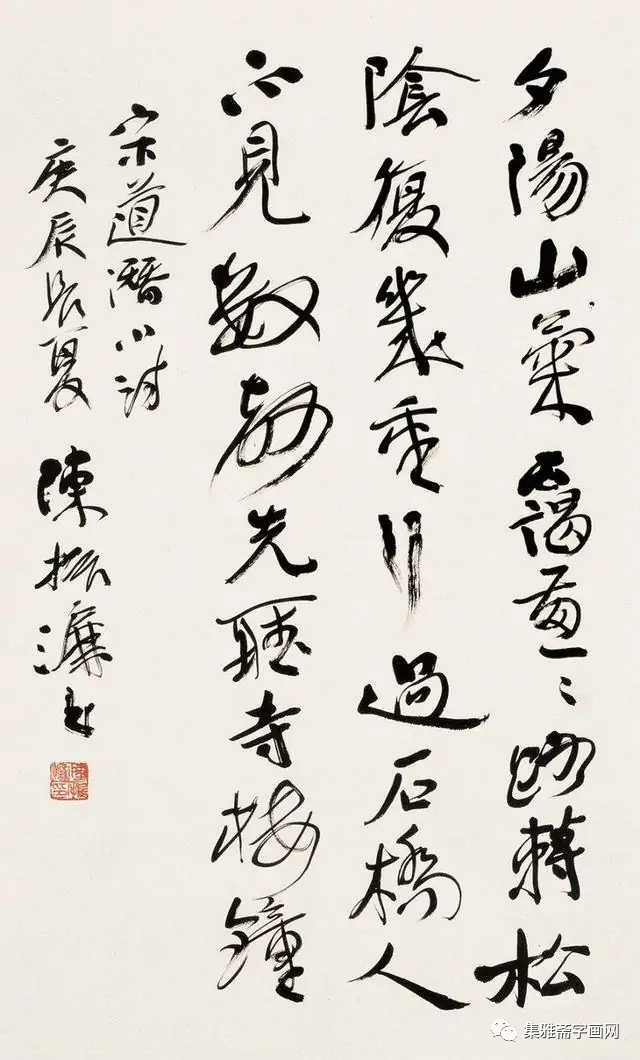 夕陽山氣靄路轉松
陰復幾重行過石橋人
不見數聲先聽寺樓鐘
宋道潛小詩
庚辰長夏 陳振濂書
集雅斋字画网